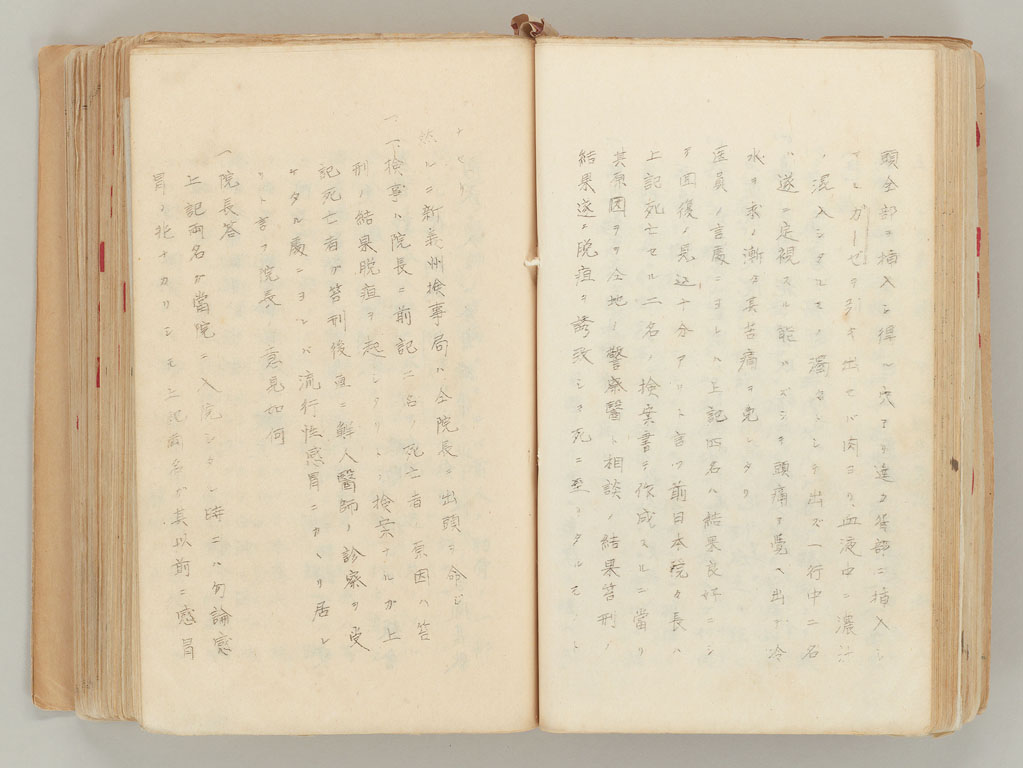 頭全部ヲ挿入シ得ル穴マデ達シ臀部ニ挿入シ
アルガーゼヲ引キ出セバ肉ヨリ血液中ニ濃汁
ノ混入シタルモノ濁々トシテ出ズ一行中二名
ハ遂ニ定視スル能ハズシテ頭痛ヲ覺ヘ出デ冷
水ヲ求メ漸ク其苦痛ヲ免レタリ
医員ノ言處ニヨレバ上記四名ハ結果良好ニシ
テ回復ノ見込十分アリト言フ前日本院々長ハ
上記死亡セル二名ノ検案書ヲ作成スルニ當リ
其原因ヲ仝地ノ警察醫ト相談ノ結果笞刑ノ
結果遂ニ脱疽ヲ誘致シテ死ニ至リタルモノト
ナセリ
然ルニ新義州検事局ハ仝院長ニ出頭ヲ命ジ
一、検事ハ院長ニ前記二名ノ死亡者ノ原因ハ笞
刑ノ結果脱疽ヲ起シタリトノ検案ナルガ上
記死亡者ガ笞刑後直ニ鮮人醫師ノ診察ヲ受
ケタル處ニヨレバ流行性感冒ニカヽリ居レ
リト言フ院長ノ意見如何
一、院長答
上記両名ガ當院ニ入院シタル時ニハ勿論感
冒ノ兆ナカリシモ上記両名ガ其以前ニ感冒